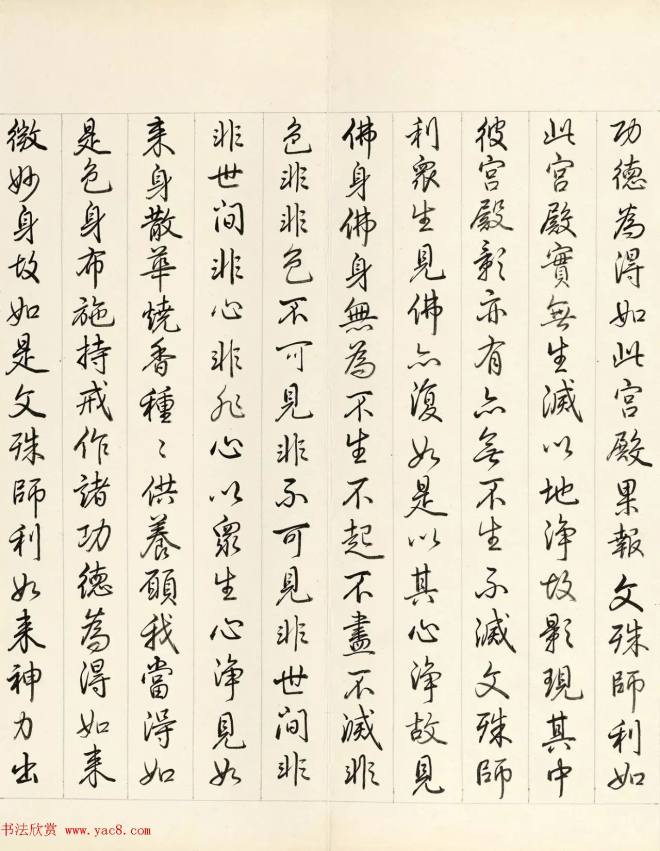 功德為得如此宮殿果報文殊師利如
此宮殿實無生滅以地淨故影現其中
彼宮殿影亦有亦無不生不滅文殊師
利眾生見佛亦復如是以其心淨故見
佛身佛身無為不生不起不盡不滅非
色非非色不可見非不可見非世間非
非世間非心非非心以眾生心淨見如
來身散華燒香種〻供養願我當得如
是色身布施持戒作諸功德為得如來
微妙身故如是文殊師利如來神力出
书法欣赏 www.yac8.com